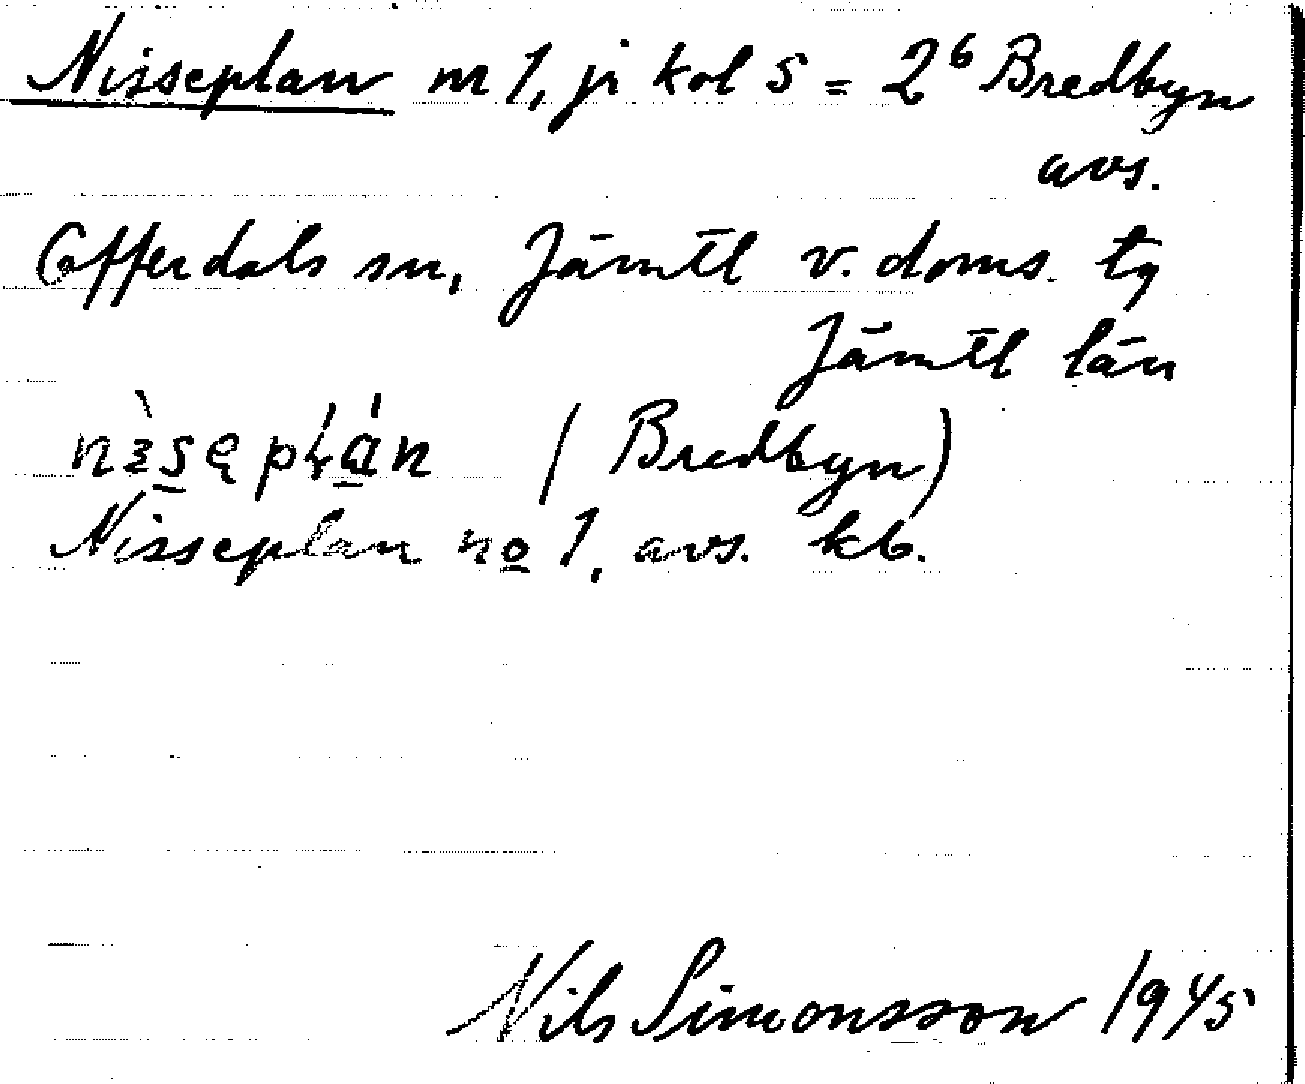 Nisseplan nr 1, ji kol 5 = 2⁶ Bredbyn
avs.
Offerdals sn, Jämtl v. doms. tg
Jämtl län
(Bredbyn)
Nisseplan no 1, avs. kb.
Nils Simonsson 1945